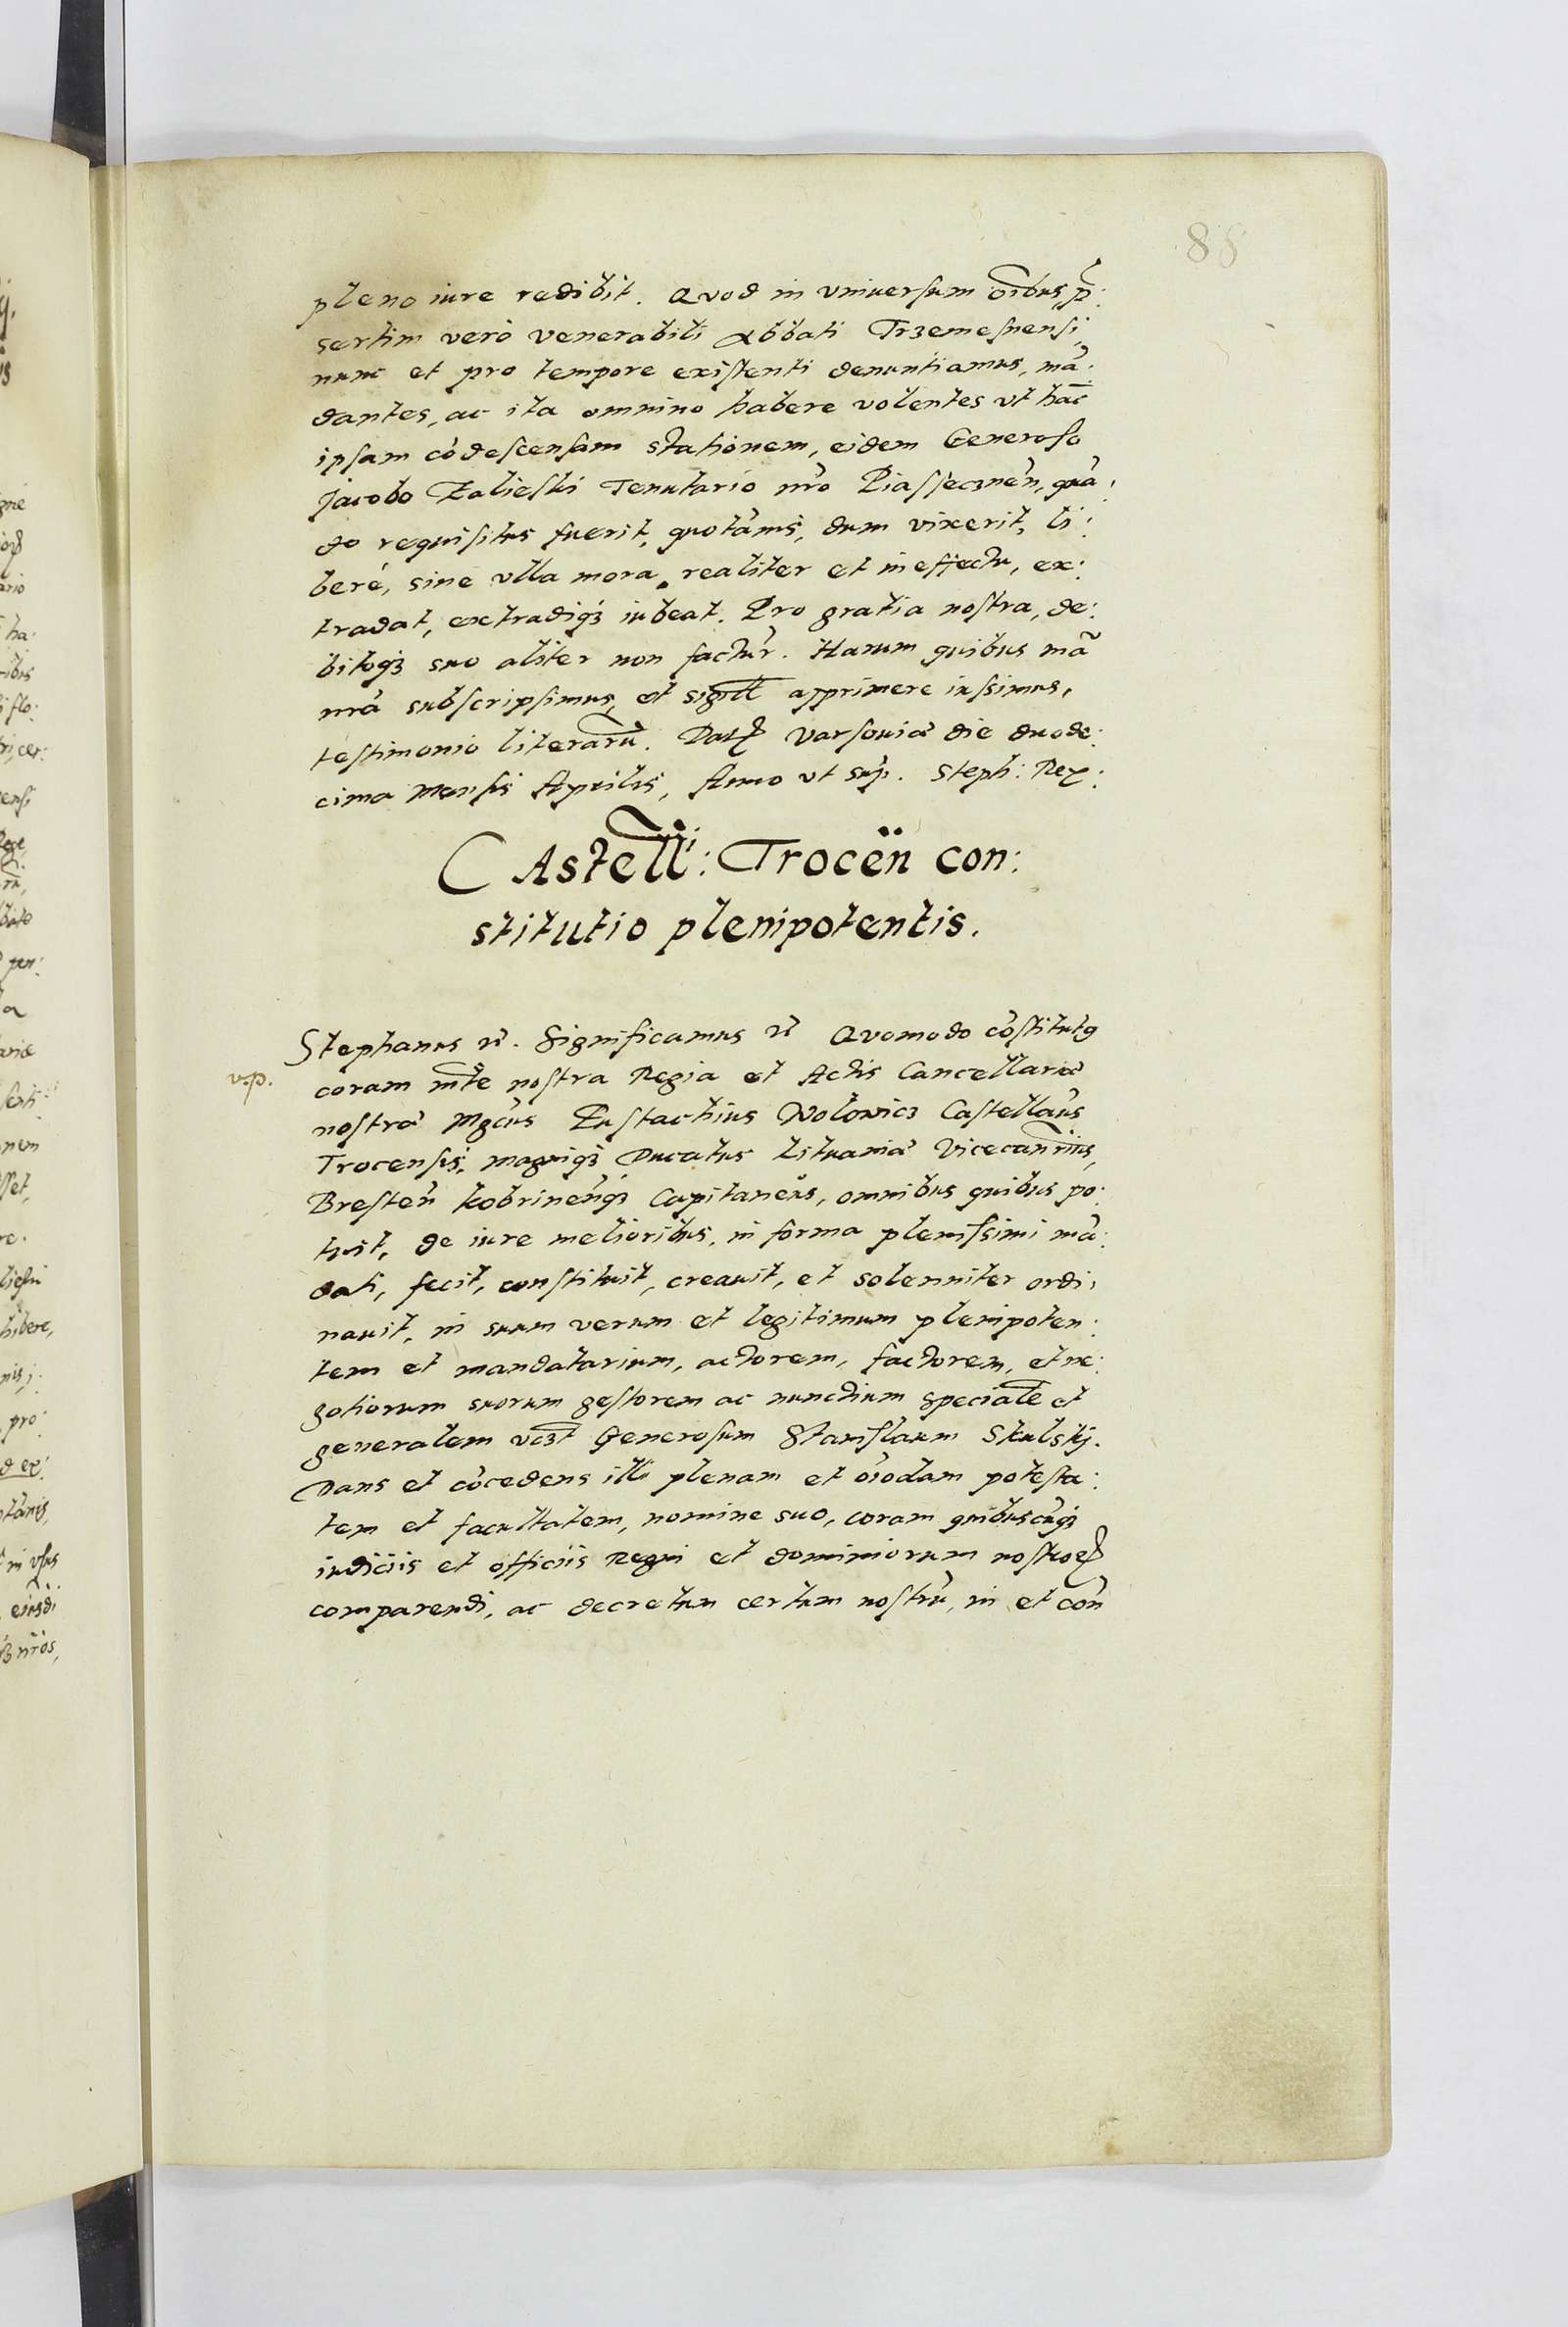 88
pleno iure redibit. Quod in vniuersum oībus, p̄:
sertim verò venerabili Abbati Trzemesnensi,
nunc et pro tempore existenti denuntiamus, mā:
dantes, ac ita omnino habere volentes vt hāc
ipsam cōdescensam stationem, eidem Generoso
Jacobo Zalieski Tenutario nr̄o Piassecznēn, quā:
do requisitus fuerit, quotānis, dum vixerit, li:
berè, sine vlla mora, realiter et in effectu, ex:
tradat, extradiq3 iubeat. Pro gratia nostra, de:
bitoq3 suo aliter non factūr. Harum quibus mā
nr̄a subscripsimus, et sigill̄ apprimere iussimus,
testimonio literarū. Datꝝ Varsouiæ die duode:
cima Mensis Aprilis, Anno vt sup̄. Steph: Rex:
CAstell̄i: Trocēn con:
stitutio plenipotentis.
Stephanus r̄. Significamus r̄ Quomodo cōstitutꝰ
v.p.
coram mt̄e nostra Regia et Actis Cancellariæ
nostræ Mgcūs Eustachius Wolowicz Castellāus
Trocensis, magniq3 Ducatus Lituaniæ Vicecan̄rius,
Bresteñ Kobrinenq̄3 Capitaneūs, omnibus quibus po:
tuit, de iure melioribus, in forma plenissimi mā:
dati, fecit, constituit, creauit, et solenniter ordi:
nauit, in suum verum et legitimum plenipoten:
tem et mandatarium, actorem, factorem, et ne:
gotiorum suorum gestorem ac nunctium specialē et
generalem vcz̄t Generosum Stanislaum Skulskij.
Dans et cōcedens illi plenam et oīodam potesta:
tem et facultatem, nomine suo, coram quibuscūq3
iudiciis et officiis Regni et dominiorum nostroꝝ
comparendi, ac decretum certum nostrū, in et cōn